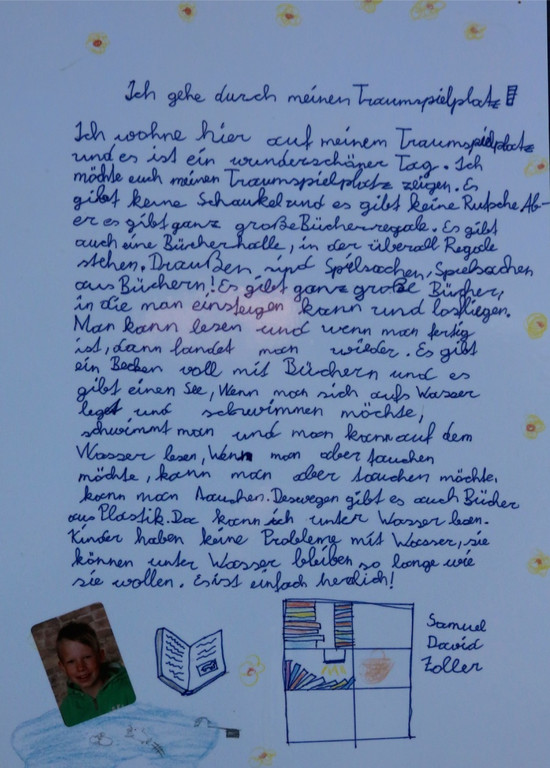 Ich gehe durch meinen Traumspielplatz!
Ich wohne hier auf meinem Traumspielplatz
und es ist ein wunderschöner Tag. Ich
möchte euch meinen Traumspielplatz zeigen. Es
gibt keine Schaukel und es gibt keine Rutsche. Ab-
er es gibt ganz große Bücherregale. Es gibt
auch eine Bücherhalle, in der überall Regale
stehen. Draußen sind Spielsachen, Spielsachen
aus Büchern! Es gibt ganz große Bücher,
in die man einsteigen kann und losfliegen.
Man kann lesen und wenn man fertig
ist, dann landet man wieder. Es gibt
ein Becken voll mit Büchern und es
gibt einen See, Wenn man sich aufs Wasser
legt und schwimmen möchte,
schwimmt man und man kann auf dem
Wasser lesen, Wenn man aber tauchen
möchte, kann man aber tauchen möchte,
kann man tauchen. Deswegen gibt es auch Bücher
aus Plastik. Da kann ich unter Wasser lesen.
Kinder haben keine Probleme mit Wasser, sie
können unter Wasser bleiben so lange wie
sie wollen. Es ist einfach herrlich!
Samuel
David
Zoller